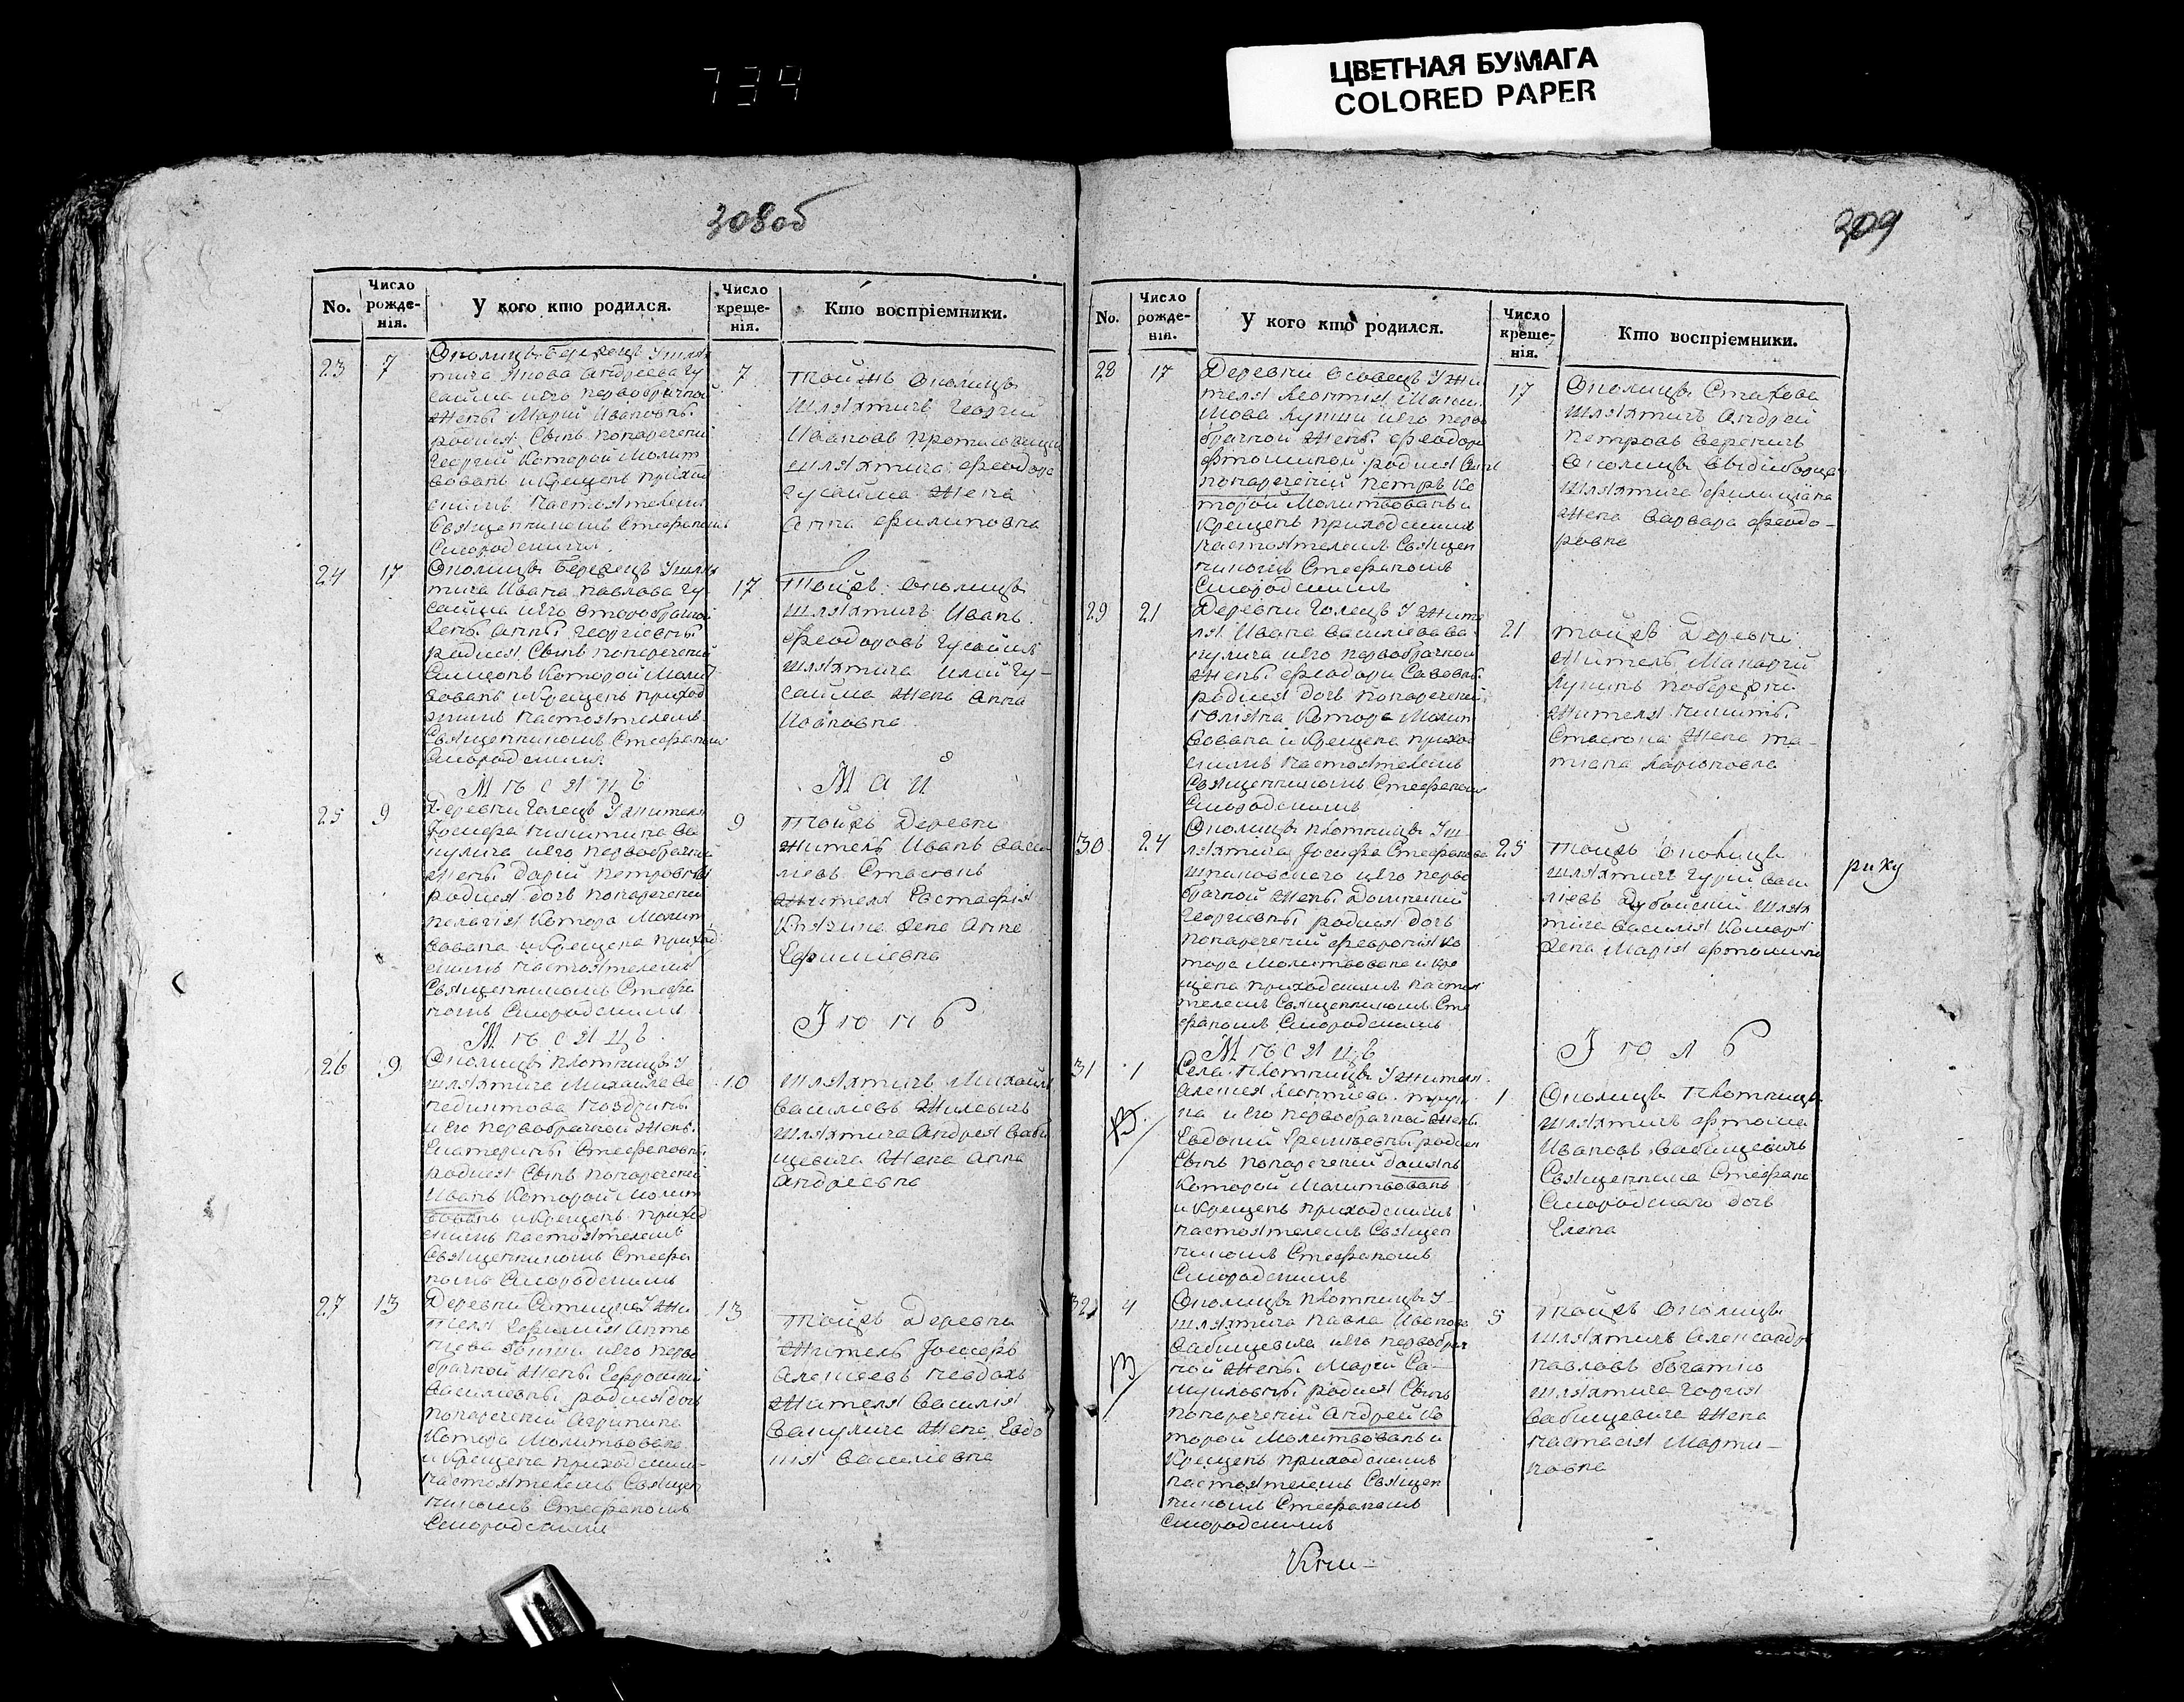 734
ЦВЕТНАЯ БУМАГА
COLORED PAPER
308об
No.
Число рожде-нія.
У кого кто родился.
Число креще-нія.
Кто воспріемники.
23 7 7
Околицы Бережцъ У шлях
тича Якова Андреева Гу
сайма и его первобрачной
жены Маріи Ивановны
родился Сынъ нонареченій
Георгій которой молит
вованъ и крещенъ приход
скимъ настоятелемъ
Священникомъ Стефаномъ
Смородскимъ.
тойжъ околицы
шляхтичъ Георгій
Ивановъ
шляхтича Феодора
Гусайма жена
Анна Филиповна
24 17 17
Околицы Бережцъ У шлях
тича Ивана Павлова Гу
сайма и его второбрачной
жены Анны Георгіевны
родился Сынъ нонареченій
Симеонъ которой молит
вованъ и крещенъ приход
скимъ настоятелемъ
Священникомъ Стефаномъ
Смородскимъ
тойжъ околицы
шляхтичъ Иванъ
Феодоровъ Гусаймъ
шляхтича Иліи Гу-
сайма жена Анна
Ивановна
Мѣсяцъ Май
25 9 9
Деревни Голецъ У жителя
Іосифа Никитина Ва
кулича и его первобрачной
жены Даріи Петровны
родился дочь нонареченій
Пелагія котора молит
вована и крещена приход
скимъ настоятелемъ
Священникомъ Стефа
номъ Смородскимъ
тойжъ Деревни
житель Иванъ Васи
ліевъ Стасюнъ
жителя Евстафія
жена Анна
Ефиміевна
Мѣсяцъ Іюнь
26 9 10
Околицы Плотницы У
шляхтича Михайла Ве
недиктова
и его первобрачной жены
Екатерины Стефановны
родился Сынъ нонареченій
Иванъ которой молит
вованъ и крещенъ приход
скимъ настоятелемъ
Священникомъ Стефа
номъ Смородскимъ
шляхтичъ Михайла
Василіевъ Жилевичъ
шляхтича Андрея Баби
щевича жена Анна
Андреевна
27 13 13
Деревни У жи
теля Ефимія Анто
нова и его перво
брачной жены Ефросиніи
Василіевны родился дочь
нонареченій Агрипина
котора молитвована
и крещена приходским
настоятелемъ Священ
никомъ Стефаномъ
Смородскимъ
тойжъ Деревни
житель Іосифъ
Алексеевъ
жителя Василія
Вакулича жена Евдо
кія Василіевна
309
No.
Число рожде-нія.
У кого кто родился.
Число креще-нія.
Кто воспріемники.
28 17 17
Деревни Осовецъ У жи
теля Леонтія Макси
мова Лупши и его перво
брачной жены Феодоры
Фтомикой родился Сынъ
нонареченій Петръ ко
торой молитвованъ и
крещенъ приходскимъ
настоятелемъ Священ
никомъ Стефаномъ
Смородскимъ
Околицы Стахова
шляхтичъ Андрей
Петровъ Вереничъ
околицы
шляхтича Филиціана
жена Варвара Феодо-
ровна
29 21 21
Деревни Голецъ У жите
ля Ивана Василіева Ва
кулича и его первобрачной
жены Феодоры Савовны
родился дочь нонареченій
котора молит
вована и крещена приход
скимъ настоятелемъ
Священникомъ Стефаномъ
Смородскимъ
тойжъ Деревни
житель Макарій
Лупинъ
жителя Никиты
Стасюна жена Та-
тіана Ларіоновна
30 24 25
Околицы Плотницы У ш
ляхтича Іосифа Стефанова
Шпаковского и его перво
брачной жены Домникіи
Георгіевны родился дочь
нонареченій Февронія ко
тора молитвована и кре
щена приходскимъ настоя
телемъ Священникомъ Сте
фаномъ Смородскимъ
тойжъ околицы
шляхтичъ Гурій Васи
ліевъ Дубойскій шлях
тича Василія Комара
жена Марія Фтомина
риху
Мѣсяцъ Іюль
31 1 1
Села Плотницы У жителя
Алексея Леонтіева
и его первобрачной жены
Евдокіи Еремѣевны родился
Сынъ нонареченій Доміянъ
которой молитвованъ
и крещенъ приходскимъ
настоятелемъ Священ
никомъ Стефаномъ
Смородскимъ
Околицы Плотницы
шляхтичъ Фтома
Ивановъ Бабищевичъ
Священника Стефана
Смородскаго дочь
Елена
32 4 5
Околицы Плотницы У
шляхтича Павла Иванова
Бабищевича и его первобрач
ной жены Маріи Са-
муиловны родился Сынъ
нонареченій Андрей ко
торой молитвованъ и
крещенъ приходскимъ
настоятелемъ Священ
никомъ Стефаномъ
Смородскимъ
тойжъ околицы
шляхтичъ Александръ
Павловъ
шляхтича
Бабищевича жена
Настасія Марти-
новна